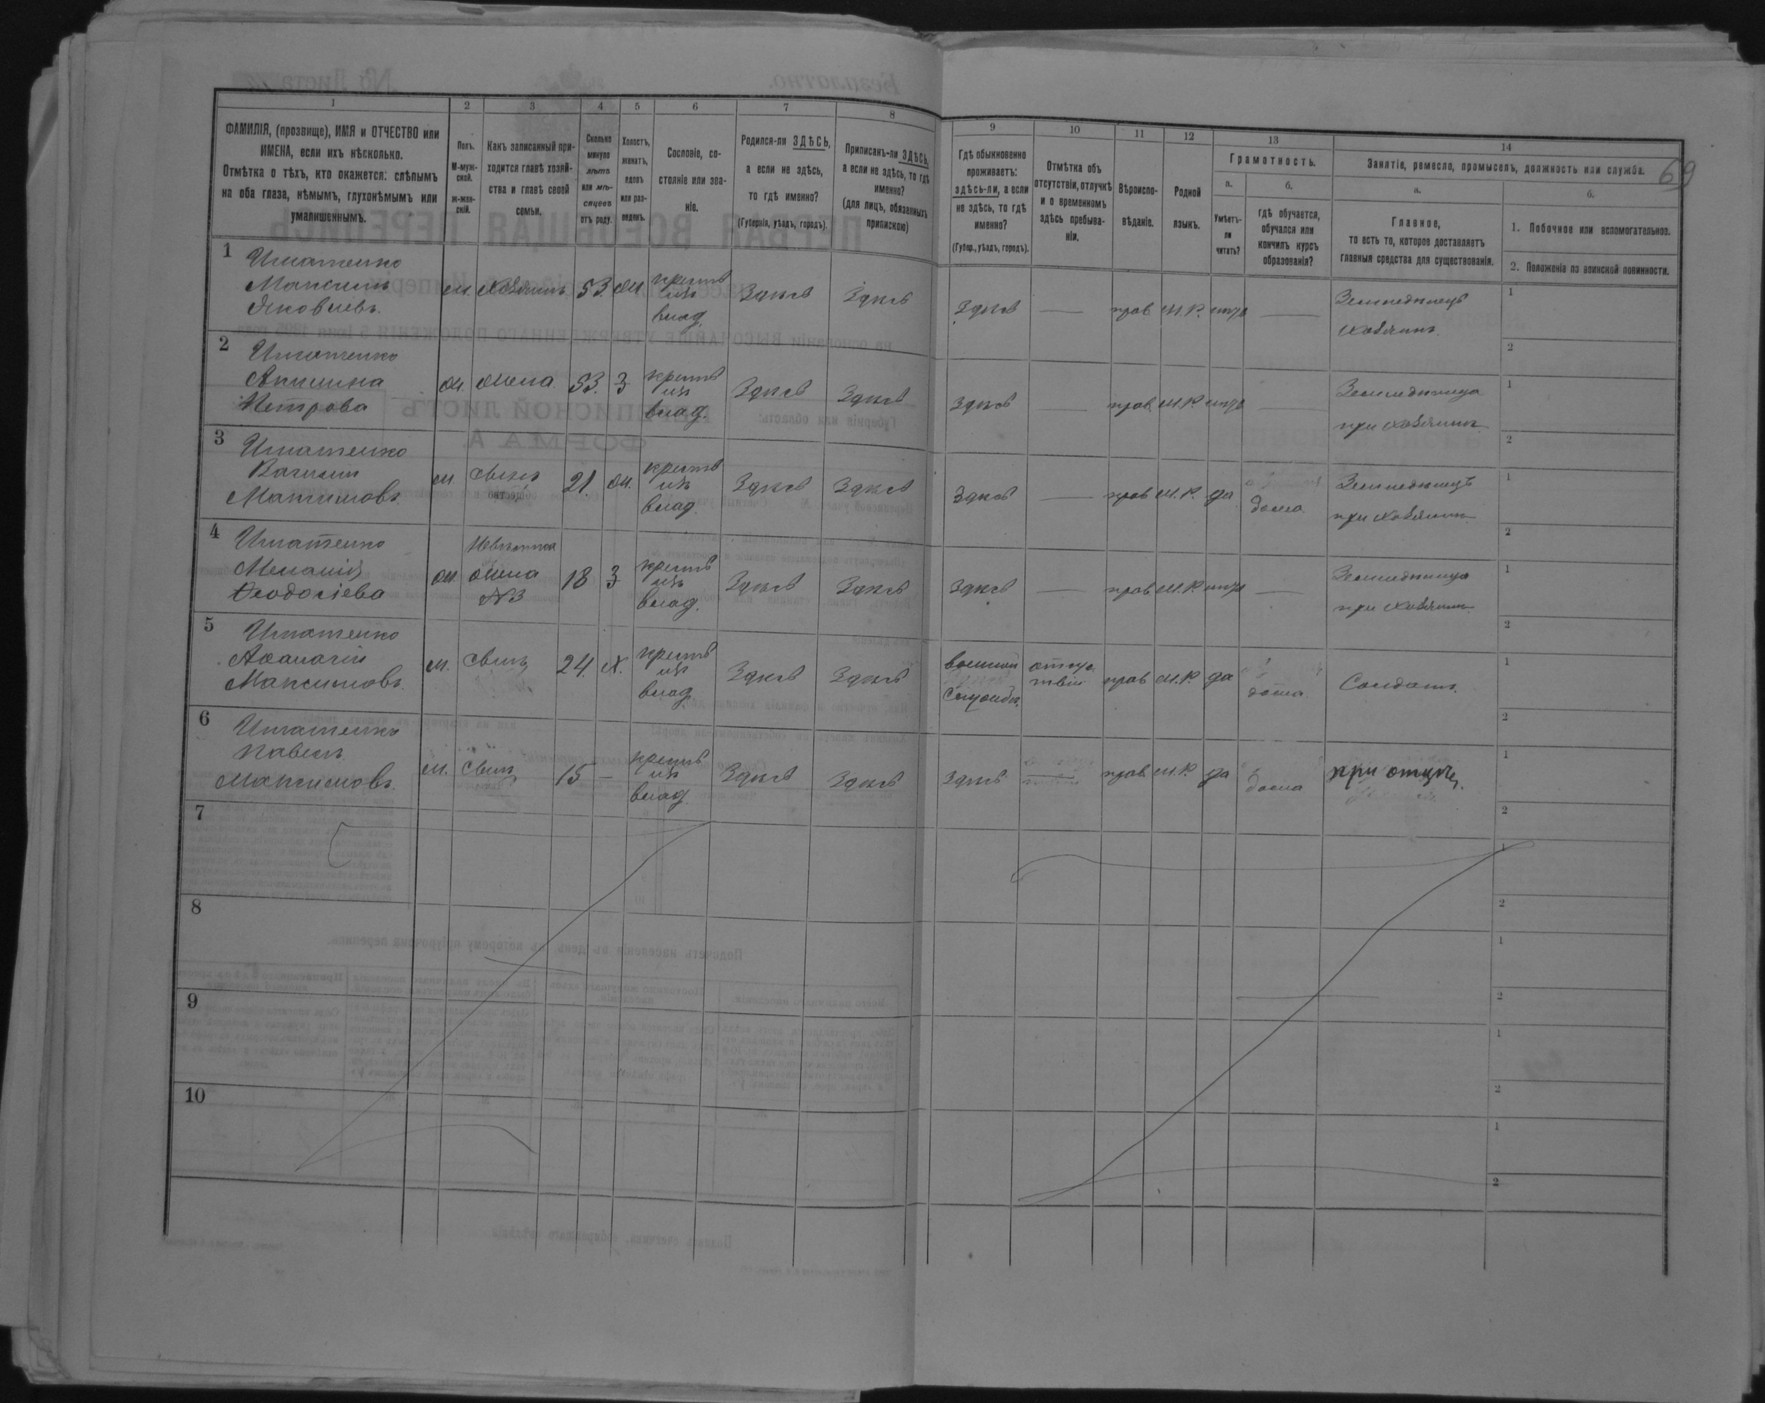 1 2 3 4 5 6 7 8 9 10 11 12 13 14
ФАМИЛІЯ, (прозвище), ИМЯ и ОТЧЕСТВО или
ИМЕНА, если ихъ нѣсколько.
Отмѣтка о тѣхъ, кто окажется: слѣпымъ
на оба глаза, нѣмымъ, глухонѣмымъ или
умалишеннымъ.
Полъ.
М-муж-
ской.
ж-жен-
скій.
Какъ записанный при-
ходится главѣ хозяй-
ства и главѣ своей
семьи.
Сколько
минуло
лѣтъ
или мѣ-
сяцевъ
отъ роду.
Холостъ,
женатъ,
вдовъ
или раз-
веденъ.
Сословіе, со-
стояніе или зва-
ніе.
Родился-ли ЗДѢСЬ,
а если не здѣсь,
то гдѣ именно?
(Губернія, уѣздъ, городъ).
Приписанъ-ли ЗДѢСЬ,
а если не здѣсь, то гдѣ
именно?
(для лицъ, обязанныхъ
припискою)
Гдѣ обыкновенно
проживаетъ:
здѣсь-ли, а если
не здѣсь, то гдѣ
именно?
(Губер., уѣздъ, городъ).
Отмѣтка объ
отсутствіи, отлучкѣ
и о временномъ
здѣсь пребыва-
ніи.
Вѣроиспо-
вѣданіе.
Родной
языкъ.
Грамотность.
а.
Умѣетъ-
ли
читать?
б.
гдѣ обучается,
обучался или
кончилъ курсъ
образованія?
Занятіе, ремесло, промыселъ, должность или служба.
69
а.
Главное,
то есть то, которое доставляетъ
главныя средства для существованія.
б.
1. Побочное или вспомогательное.
2. Положеніе по воинской повинности.
1 Игнатенко
Максимъ
Яковлевъ
м. хозяинъ 53. ж. Здѣсь Здѣсь Здѣсь — прав М.Р. — Земледѣлецъ
хозяинъ
2 Игнатенко
Акилина
Петрова
ж жена 53. З Здѣсь Здѣсь Здѣсь — прав М.Р. — Земледѣлица
при хозяинѣ
3 Игнатенко
Василій
Максимовъ
м сынъ 21. ж. Здѣсь Здѣсь Здѣсь — прав М.Р. да дома Земледѣлецъ
при хозяинѣ
4 Игнатенко
Меланія
Феодосіева
ж Невѣстка
жена
№3
18 З Здѣсь Здѣсь Здѣсь — прав М.Р. — Земледѣлица
при хозяинѣ
5 Игнатенко
Афанасій
Максимовъ
м. сынъ 24. х. Здѣсь Здѣсь прав М.Р. да дома Солдатъ
6 Игнатенко
Павелъ
Максимовъ
м. сынъ 15 — Здѣсь Здѣсь Здѣсь — прав М.Р. да дома при отцѣ
7
8
9
10